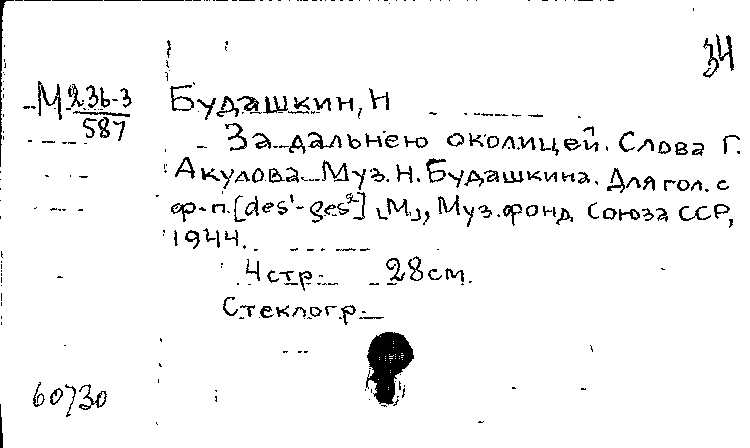 34
М 236-3 Будашкин, Н
587
За дальнею околицей. Слова Г.
Акулова Муз. Н. Будашкина. Для гол. с
ф-п. [des¹-ges²] [М], Муз. фонд Союза ССР,
1944.
4 стр. 28 см.
Стеклогр.
60730